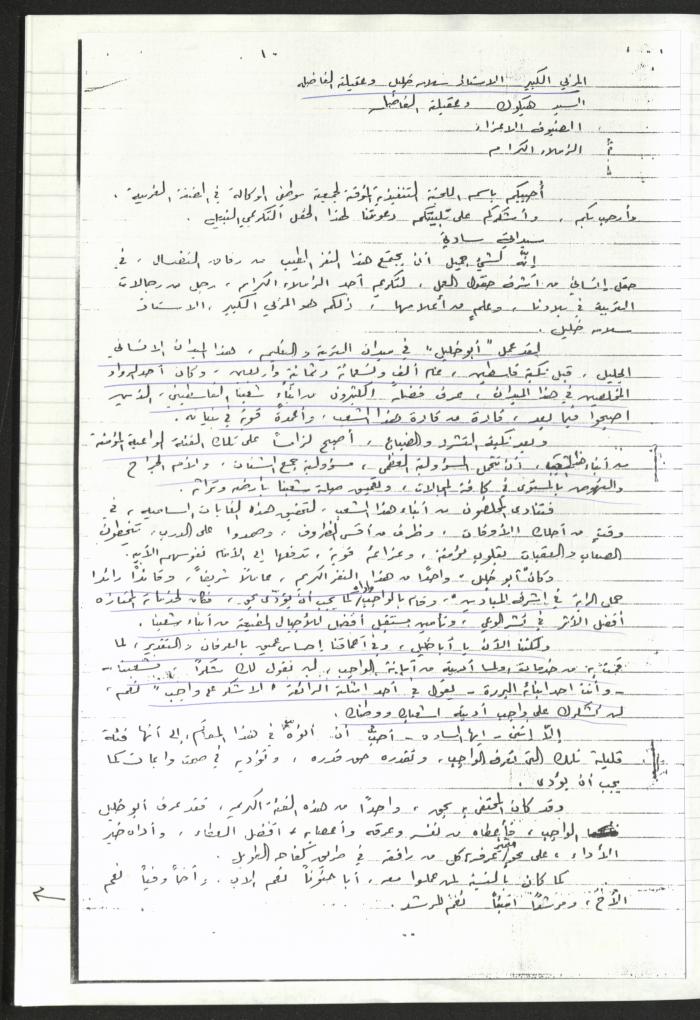 المربي الكبير الاستاذ سلامه خليل وعقيلته الفاضله
السيد هيكوك وعقيلته الفاضله
الضيوف الاعزاء
الزملاء الكرام
أحييكم باسم اللجنة التنفيذية المؤقتة لجمعية موظفي الوكالة في الضفة الغربية .
وأرحب بكم ، وأشكركم على تلبيتكم دعوتنا لهذا الحفل التكريمي النبيل .
سيداتي سادتي
إنه لشيء جميل أن يجتمع هذا النفر الطيب من رفاق النضال ، في
حقل إنساني من أشرف حقول العمل ، لتكريم أحد الزملاء الكرام ، رجل من رجالات
التربية في بلادنا ، وعلم من أعلامها ، ذلكم هو المربي الكبير ، الاستاذ
سلامه خليل .
لقد عمل "أبو خليل" في ميدان التربية والتعليم ، هذا الميدان الانساني
الجليل ، قبل نكبة فلسطين ، عام ألف وتسعمائة وثمانية وأربعين ، وكان أحد الرواد
المخلصين في هذا الميدان ، عرف فضله الكثيرون من أبناء شعبنا الفلسطيني ، الذين
اصبحوا فيما بعد ، قادة من قادة هذا الشعب ، وأعمدة قوية في بنيانه .
وبعد نكبة التشرد والضياع ، أصبح لزاماً على تلك الفئة الواعية المؤمنة
من أبناء شعبنا ، أن تتحمل المسؤولية العظمى ، مسؤولية جمع الشتات ، ولأم الجراح
والنهوض بالمستوى في كافة المجالات ، وتعميق صلة شعبنا بأرضه وتراثه .
فتنادى المخلصون من أبناء هذا الشعب ، لتحقيق هذه الغايات السامية ، في
وقت من أحلك الأوقات ، وظرف من أقسى الظروف ، وصمدوا على الدرب ، يتخطون
الصعاب والعقبات بقلوب مؤمنة ، وعزائم قوية ، تدفعها إلى الأمام نفوسهم الأبية .
وكان "أبو خليل" واحداً من هذا النفر الكريم ، عاملاً شريفاً ، وقائداً رائدا
حمل الراية في أشرف الميادين ، وقام بالواجب كما يجب أن يؤدى بحق ، فكان لخدماته الممتازه
أفضل الأثر في نشر الوعي ، وتأمين مستقبل أفضل للأجيال المتعاقبة من أبناء شعبنا .
ولكننا الآن يا أبا خليل ، وفي أعماقنا إحساس عميق بالعرفان والتقدير ، لما
قمت به من خدمات ولما أديت من أمانة الواجب ، لن نقول لك شكراً ، فشعبنا -
- وأنت أحد ابنائه البررة - يقول في أحد امثلته الرائعة "لا شكر على واجب" نعم ،
لن نشكرك على واجب أديته لشعبك ووطنك .
إلا أنني - أيها الساده - أحب أن أنوه في هذا المقام ، إلى أنها فئة
قليلة تلك التي تعرف الواجب ، وتقدره حق قدره ، وتؤديه في صمت وايمان كما
يجب أن يؤدى .
وقد كان المحتفى به بحق ، واحداً من هذه الفئة الكريمه ، فقد عرف أبو خليل
الواجب ، فأعطاه من نفسه وعرقه وأعصابه ، افضل العطاء ، وأداه خير
الأداء ، على نحو عرفه كل من رافقه في طريق كفاحه الطويل .
كما كان بالنسبة لمن عملوا معه ، أبا حنوناً نعم الاب ، وأخاً وفياً نعم
الأخ ، ومرشداً أميناً نعم المرشد .